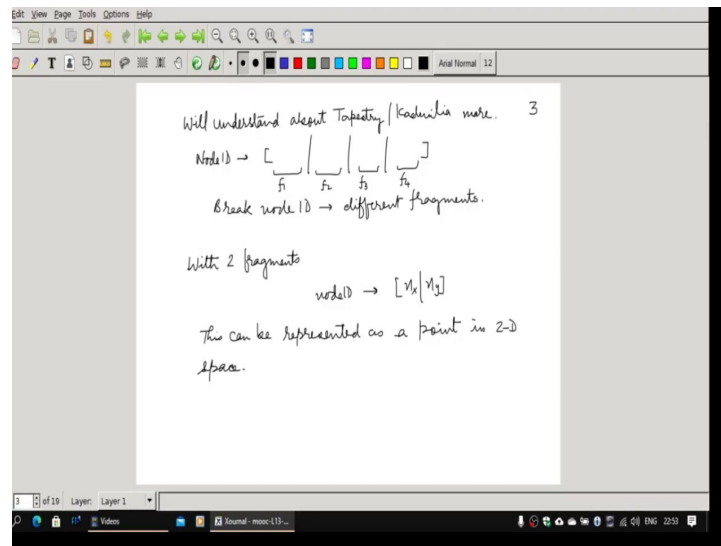 Edit View Page Tools Options Help
T
Arial Normal 12
Will understand about Tapestry/Kadmilia more. 3
NodeID → [ | | | ]
f1 f2 f3 f4
Break node ID → different fragments.
With 2 fragments
nodeID → [nx|ny]
This can be represented as a point in 2-D
space.
3 of 19 Layer: Layer 1
Videos Xournal - mooc-L13-... ENG 2253